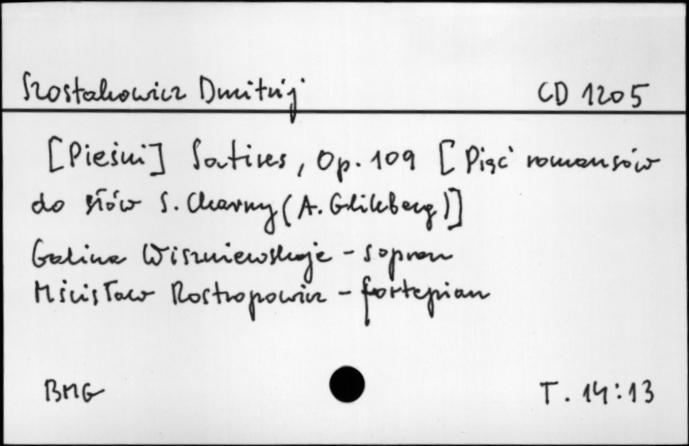 Szostakowicz Dmitrij CD 1205
[Pieśni] Satires, Op. 109 [Pięć romansów
do słów S. Charny (A. Glikberg)]
Galina Wiszniewskaja - sopran
Mścisław Rostropowicz - fortepian
BMG T. 14:13